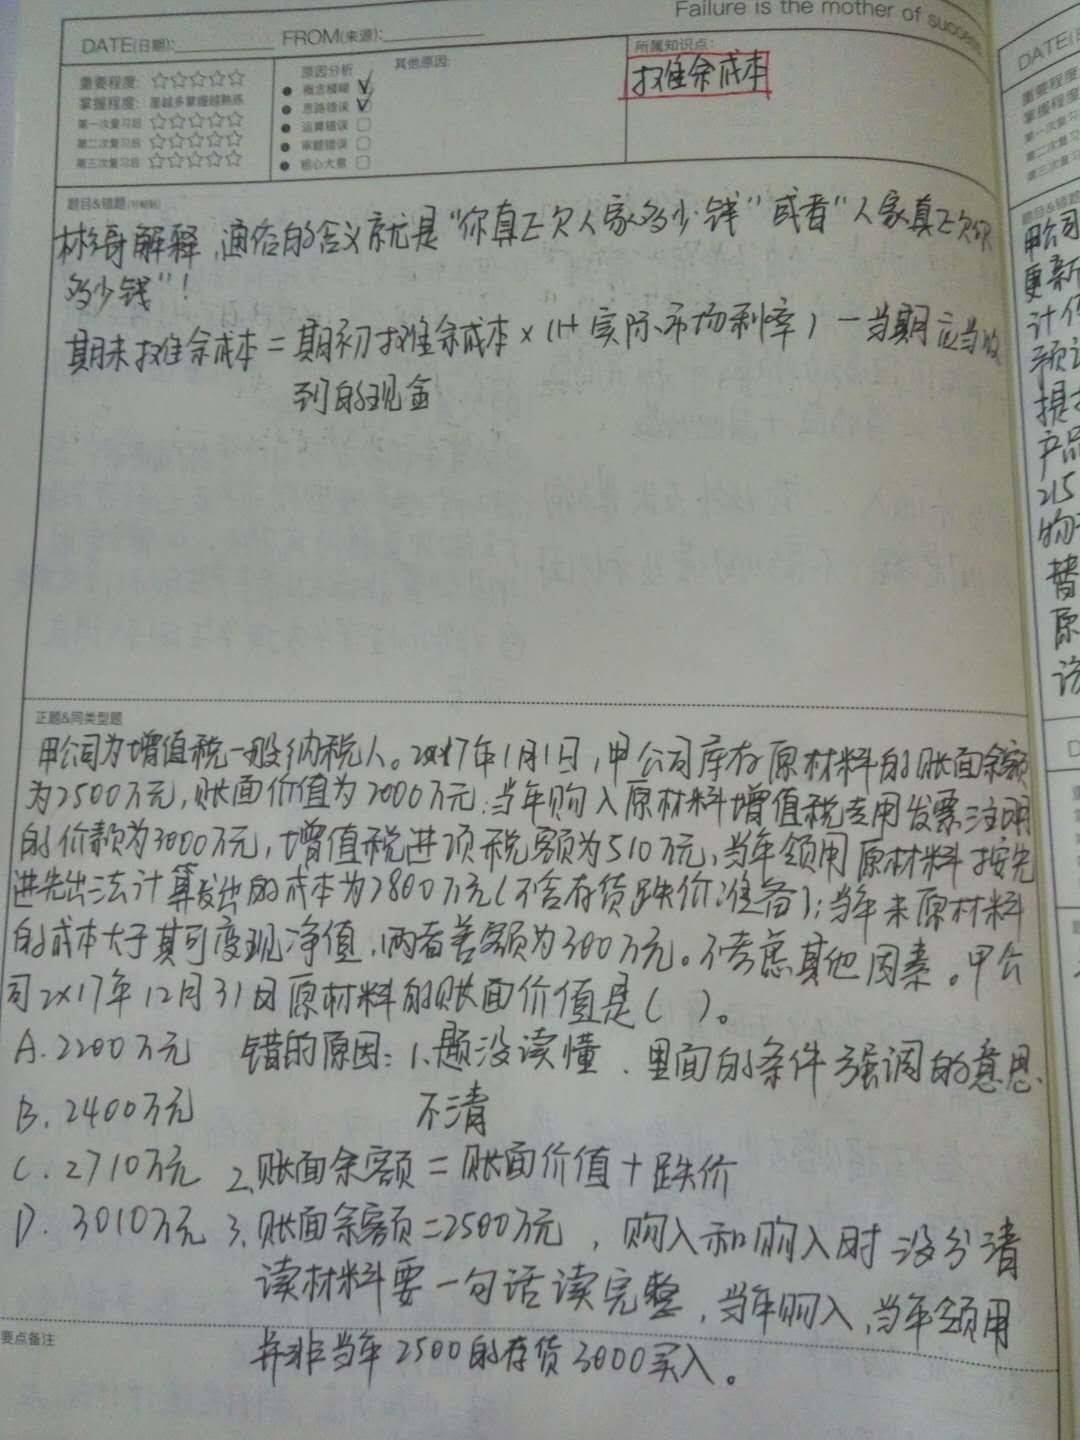 Failure is the mother of success
DATE(日期):
FROM(来源):
重要程度: ☆☆☆☆☆
掌握程度: 星越多掌握越熟练
第一次复习后 ☆☆☆☆☆
第二次复习后 ☆☆☆☆☆
第三次复习后 ☆☆☆☆☆
原因分析
其他原因:
概念模糊 ✓
思路错误 ✓
运算错误
审题错误
粗心大意
所属知识点:
摊余成本
题目&错题
彬哥解释,通俗的含义就是“你真正欠人家多少钱”或者“人家真正欠你
多少钱”!
期末摊余成本=期初摊余成本×(1+实际市场利率)-当期应当收
到的现金
正题&同类型题
甲公司为增值税一般纳税人。2×17年1月1日,甲公司库存原材料的账面余额
为2500万元,账面价值为2000万元;当年购入原材料增值税专用发票注明
的价款为3000万元,增值税进项税额为510万元,当年领用原材料按先
进先出法计算发出的成本为2800万元(不含存货跌价准备);当年末原材料
的成本大于其可变现净值,两者差额为300万元。不考虑其他因素。甲公
司2×17年12月31日原材料的账面价值是( )。
A.2200万元 错的原因:1.题没读懂.里面的条件强调的意思
B.2400万元 不清
C.2710万元 2.账面余额=账面价值+跌价
D.3010万元 3.账面余额=2500万元,购入和购入时没分清
读材料要一句话读完整,当年购入,当年领用
要点备注
并非当年2500的存货3000买入。
DATE(日
重要程度
掌握程度
第一次复
第二次复
第三次复
题目&错题
甲公司
更新
计
预
产品
215
替
原